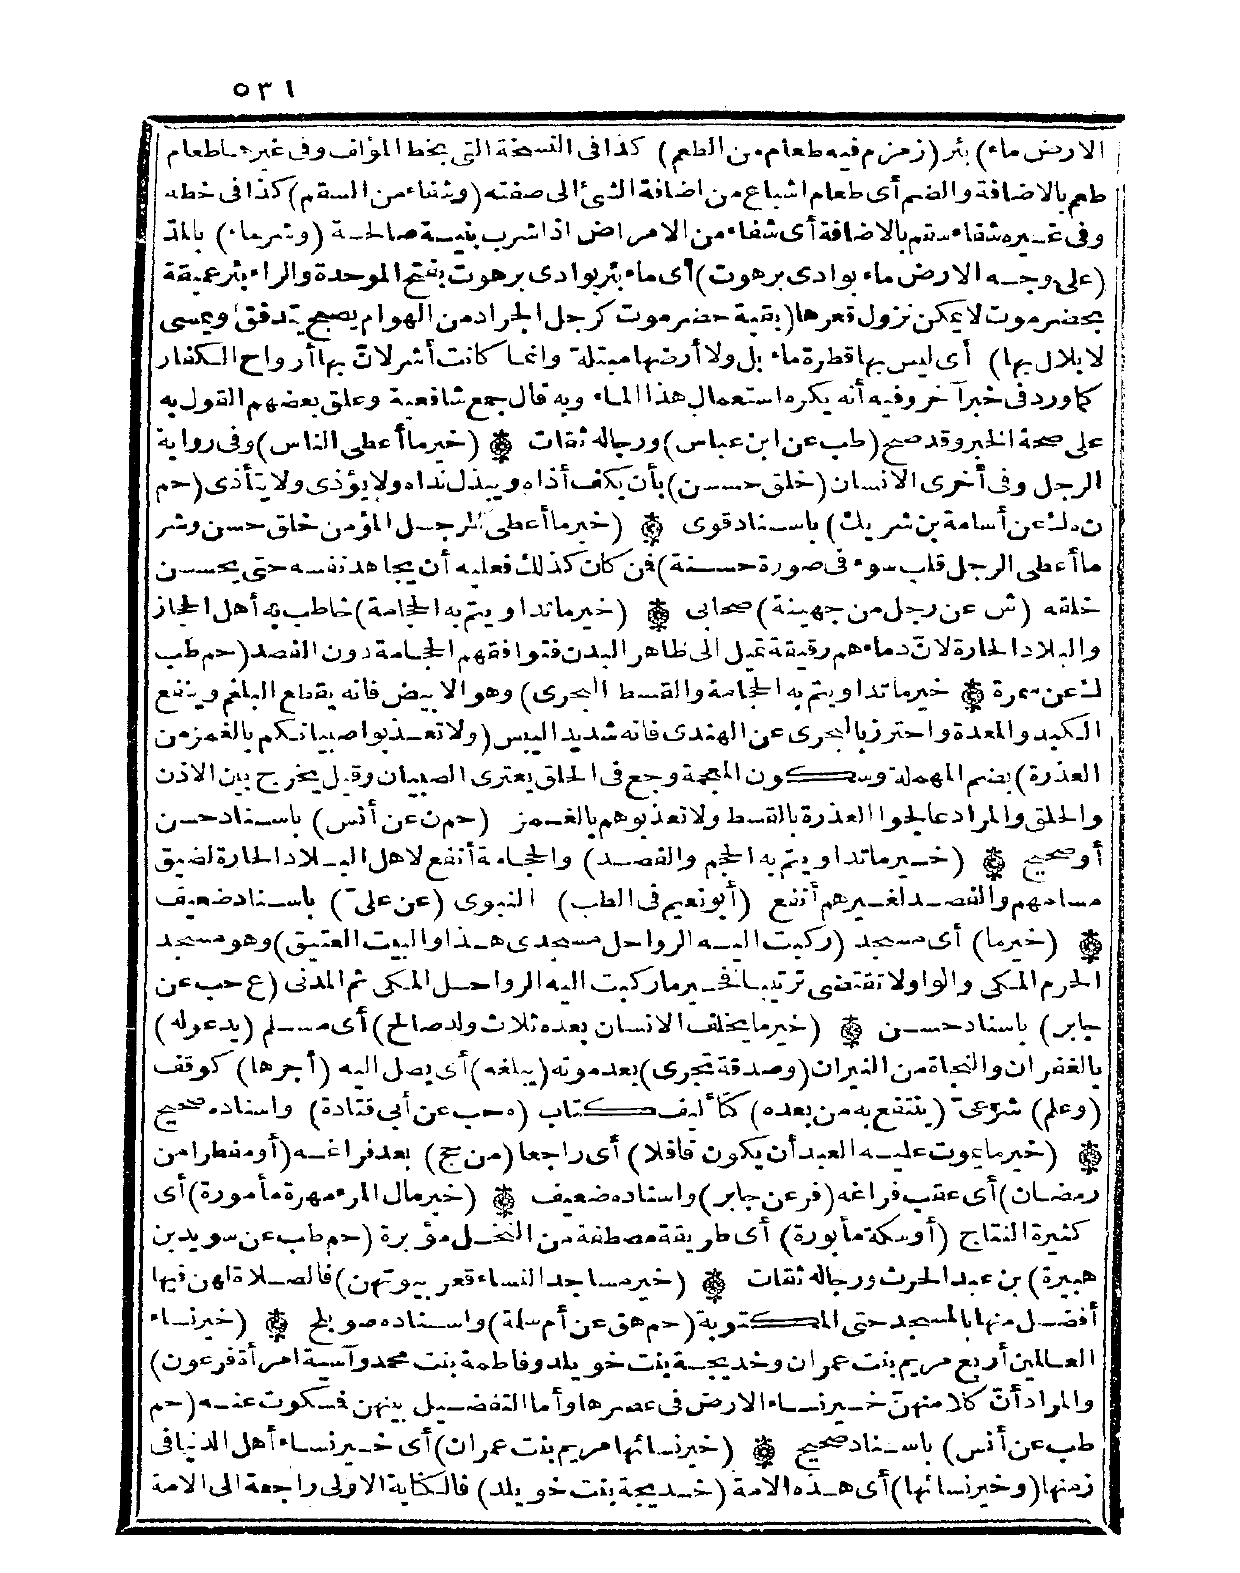 ٥٣١
الارض ماء) بئر (زمزم فيه طعام من الطعم) كذا فى النسخة التى بخط المؤلف وفى غيرها طعام
طعم بالاضافة والضم أى طعام اشباع من اضافة الشئ الى صفته (وشفاء من السقم) كذا فى خطه
وفى غيره شفاء سقم بالاضافة أى شفاء من الامراض اذا شرب بنية صالحة (وشر ماء) بالمد
(على وجه الارض ماء بوادى برهوت) أى ماء بئر بوادى برهوت بفتح الموحدة والراء بئر عميقة
بحضرموت لا يمكن نزول قعرها (بقية حضرموت كرجل الجراد من الهوام يصبح يتدفق ويمسى
لا بلال بها) أى ليس بها قطرة ماء بل ولا أرضها مبتلة وانما كانت أشر لان بها أرواح الكفار
كما ورد فى خبر آخر وفيه أنه يكره استعمال هذا الماء وبه قال جمع شافعية وعلق بعضهم القول به
على صحة الخبر وقد صح (طب عن ابن عباس) ورجاله ثقات ۞ (خير ما أعطى الناس) وفى رواية
الرجل وفى أخرى الانسان (خلق حسن) بأن يكف أذاه ويبذل نداه ولا يؤذى ولا يتأذى (حم
ن ه ك عن أسامة بن شريك) باسناد قوى ۞ (خير ما أعطى الرجل المؤمن خلق حسن وشر
ما أعطى الرجل قلب سوء فى صورة حسنة) فمن كان كذلك فعليه أن يجاهد نفسه حتى يحسن
خلقه (ش عن رجل من جهينة) صحابى ۞ (خير ما تداويتم به الحجامة) خاطب به أهل الحجاز
والبلاد الحارة لانّ دماءهم رقيقة تميل الى ظاهر البدن فتوافقهم الحجامة دون الفصد (حم طب
ك عن سمرة ۞ خير ما تداويتم به الحجامة والقسط البحرى) وهو الابيض فانه يقطع البلغم وينفع
الكبد والمعدة واحترز بالبحرى عن الهندى فانه شديد اليبس (ولا تعذبوا صبيانكم بالغمز من
العذرة) بضم المهملة وسكون المعجمة وجع فى الحلق يعترى الصبيان وقيل يخرج بين الاذن
والحلق والمراد عالجوا العذرة بالقسط ولا تعذبوهم بالغمز (حم ن عن أنس) باسناد حسن
أو صحيح ۞ (خير ما تداويتم به الحجم والفصد) والحجامة أنفع لاهل البلاد الحارة لضيق
مسامهم والفصد لغيرهم أنفع (أبو نعيم فى الطب) النبوى (عن علىّ) باسناد ضعيف
۞ (خير ما) أى مسجد (ركبت اليه الرواحل مسجدى هذا والبيت العتيق) وهو مسجد
الحرم المكى والواو لا تقتضى ترتيبا فخير ما ركبت اليه الرواحل المكى ثم المدنى (ع حب عن
جابر) باسناد حسن ۞ (خير ما يخلف الانسان بعده ثلاث ولد صالح) أى مسلم (يدعو له)
بالغفران والنجاة من النيران (وصدقة تجرى) بعد موته (يبلغه) أى يصل اليه (أجرها) كوقف
(وعلم) شرعىّ (ينتفع به من بعده) كتأليف كتاب (ه حب عن أبى قتادة) واسناده صحيح
۞ (خير ما يموت عليه العبد أن يكون قافلا) أى راجعا (من حج) بعد فراغه (أو مفطرا من
رمضان) أى عقب فراغه (فر عن جابر) واسناده ضعيف ۞ (خير مال المرء مهرة مأمورة) أى
كثيرة النتاج (أو سكة مأبورة) أى طريقة مصطفة من النخل مؤبرة (حم طب عن سويد بن
هبيرة) بن عبد الحرث ورجاله ثقات ۞ (خير مساجد النساء قعر بيوتهن) فالصلاة لهن فيها
أفضل منها بالمسجد حتى المكتوبة (حم هق عن أم سلمة) واسناده صويلح ۞ (خير نساء
العالمين أربع مريم بنت عمران وخديجة بنت خويلد وفاطمة بنت محمد وآسية امرأة فرعون)
والمراد أنّ كلا منهنّ خير نساء الارض فى عصرها وأما التفضيل بينهن فسكوت عنه (حم
طب عن أنس) باسناد صحيح ۞ (خير نسائها مريم بنت عمران) أى خير نساء أهل الدنيا فى
زمنها (وخير نسائها) أى هذه الامة (خديجة بنت خويلد) فالكناية الاولى راجعة الى الامة